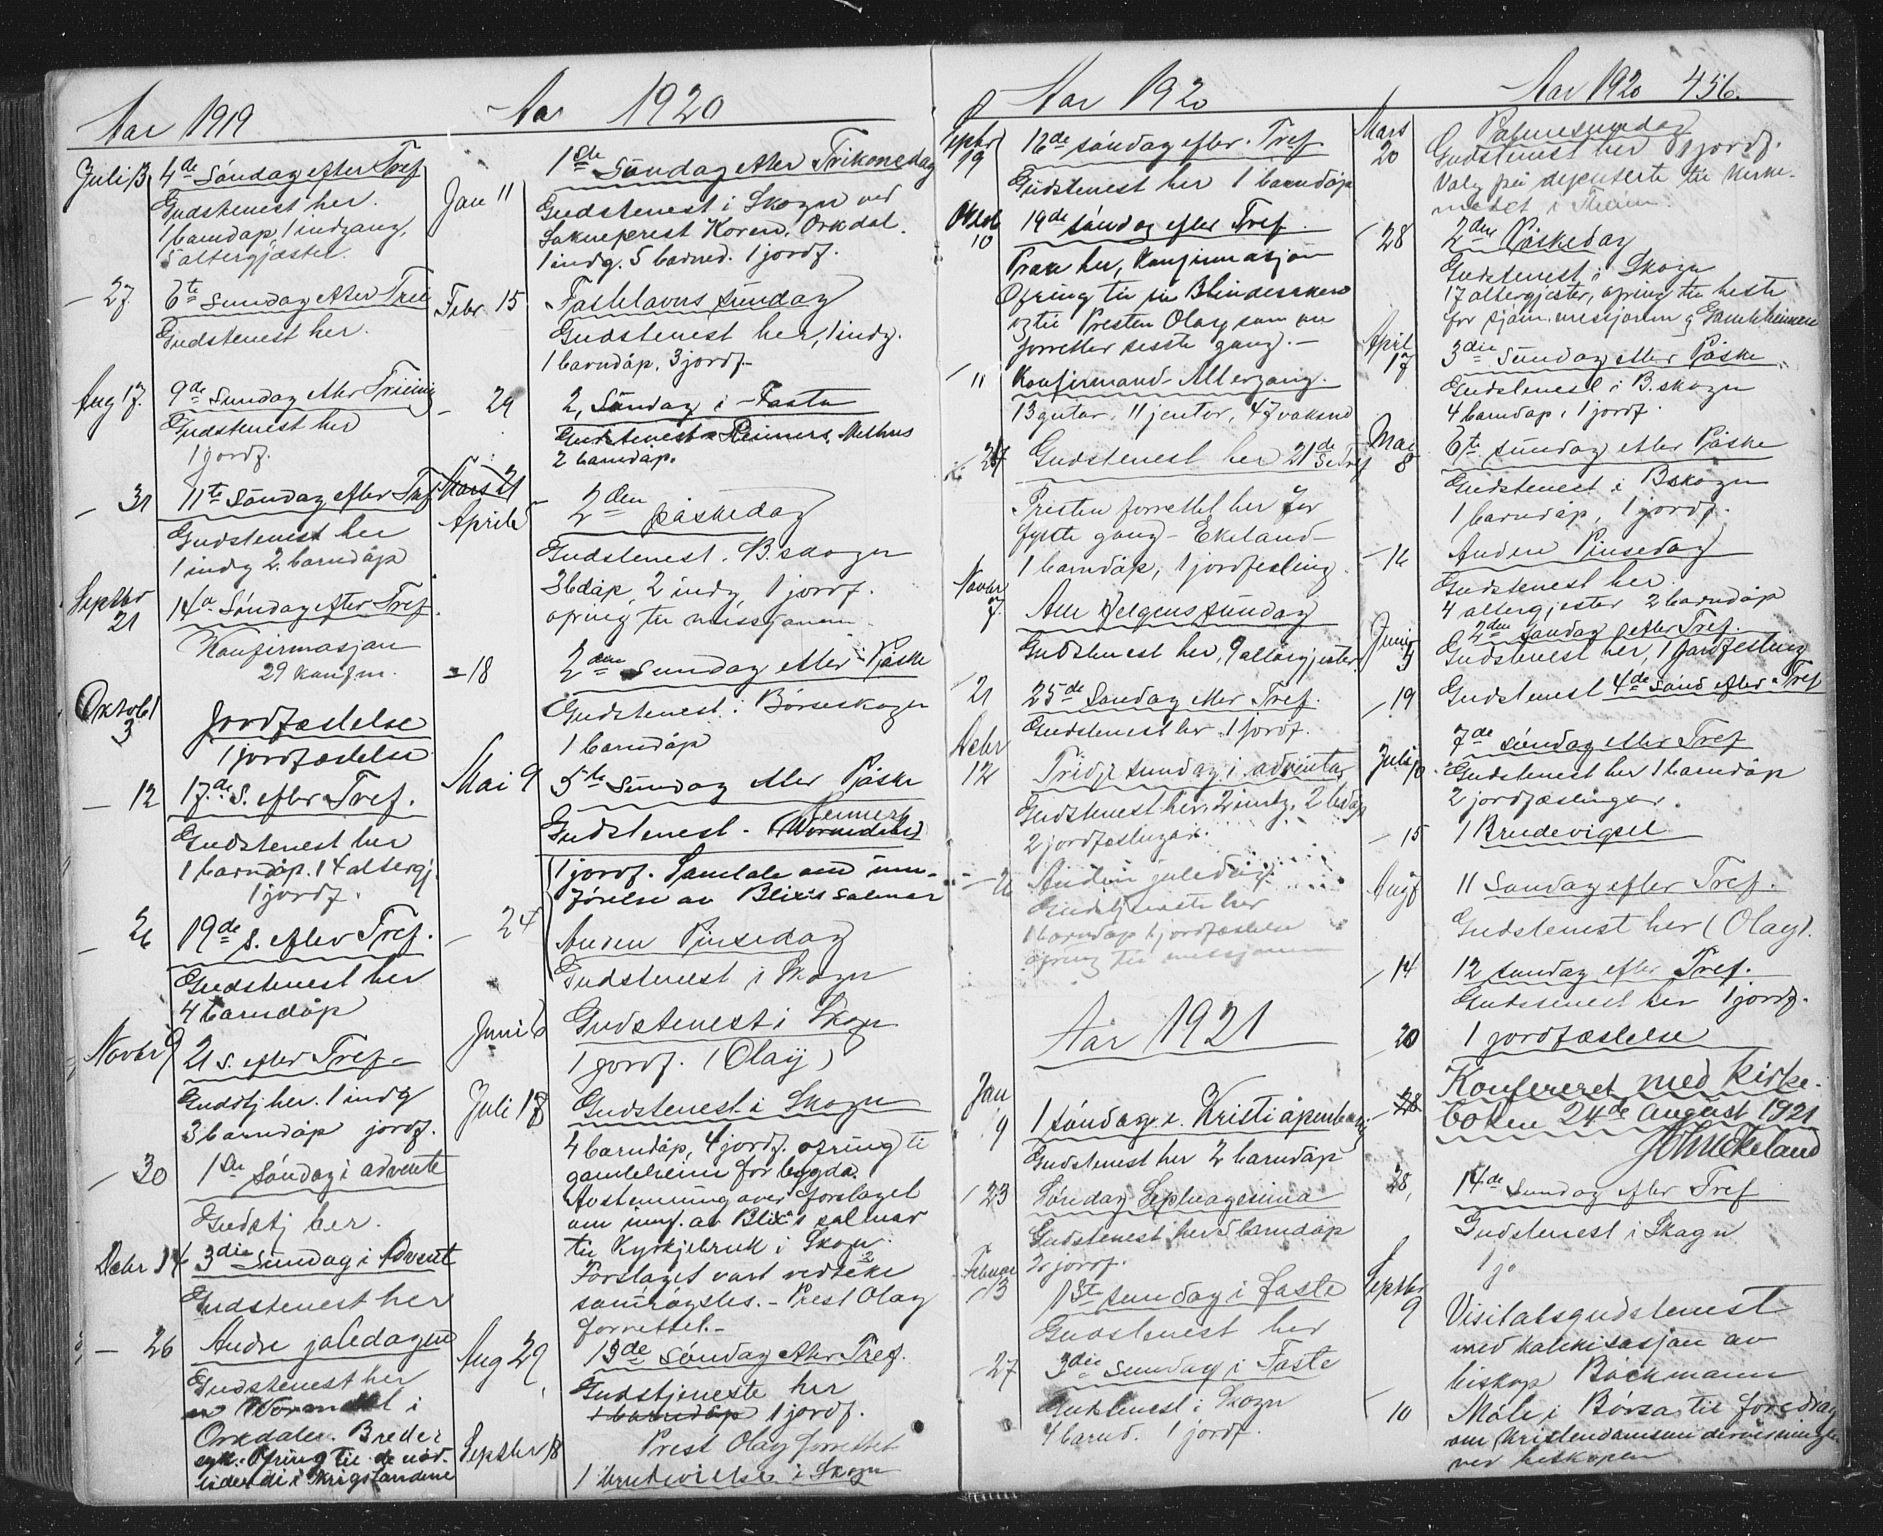 Aar 1919
Juli 13 4de Søndag efter Tref
Gudstenest her.
1 barndåp, 1 indgang,
5 altergjæster.
— 27 6te Sundag etter Trei
Gudstenest her.
Aug 17. 9de Sundag etter Treiing
Gudstenest her
1 jordf.
— 31 11te Søndag efter Tref
Gudstenest her
1 indg 2 barndåp
Septbr 21 14d Søndag efter Tref.
Konfirmasjon
29 konfm.
Oktob 3 Jordfæstelse
1 jordfæstelse
— 12 17de S. efter Tref.
Gudstenest her
1 barndåp. 14 altergj.
1 jordf.
— 26 19de S. efter Tref.
Gudstenest her
4 barndåp
Novbr 9 21 S. efter Tref.
Gudstj her. 1 indg
3 barndåp jordf.
— 30 1ste Søndag i advente
Gudstj her.
Decbr 14 3die Sundag i Advent
Gudstenest her
— 26 Andre joledagen
Gudstenest her
Wormdal i
Orkdalen. Breder
syk. Ofring til de nød-
lidende i Krigslandene
Aar 1920
Jan 11 1ste Søndag etter Trikongedag
Gudstenest i Skogn ved
Sokneprest Koren, Orkdal.
1 indg. 5 barned. 1 jordf.
Febr 15 Fastelavns sundag
Gudstenest her, 1 indg.
1 barndåp, 3 jordf.
— 29 2. Søndag i Faste
Gudstenest Reimers, Melhus
2 barndåp.
Mars 21
April 5 2den påskedag
Gudstenest. B.skogn
3 bdåp, 2 indg, 1 jordf.
ofring til missjonen
— 18 2den Sundag etter Påske
Gudstenest i Børseskogn
1 barndåp
Mai 9 5te Sundag etter Påske
Reimers
Gudstenest. (Wormdahl)
1 jordf. Samtale om inn-
førelse av Blix's salmar
— 24 Anden Pinsedag
Gudstenest i Skogn
Juni 6 Gudstenest i Skogn
1 jordf. (Olay)
Juli 18 Gudstenest i Skogn
4 barndåp, 4 jordf. ofring ti
gamleheim for bygda
Avstemning over forslaget
om innf. av Blix's salmar
til Kyrkjebruk i Skogn.
Forslaget vart vedteke
samrøystes. — Prest Olay
forrettet. —
Aug 29 13de Søndag etter Tref.
Gudstjeneste her
1 barndåp 1 jordf.
Prest Olay forrettet
Septbr 18 1 brudevielse i Skogn
Aar 1920
Septbr 19 16de søndag efter Tref
Gudstenest her 1 barndåp
Oktob 10 19de søndag efter Tref.
Preken her, Konfirmasjon
Ofring til Blinde
og til Presten Olay som nu
forretter sisste gang. —
— 11 Konfirmand-Altergang.
13 gutar, 11 jentor, 47 vaksne
— 24 Gudstenest her 21de S. e. Tref
Presten forrettet her for
fyste gang — Ekeland —
1 barndåp, 1 jordfesting.
Novbr 7. Alle Helgens sundag
Gudstenest her, 9 altergjester
— 21 25de Søndag etter Tref.
Gudstenest her 1 jordf.
Decbr 12 Tridje sundag i adventa
Gudstenest her, 2 indg. 2 bdåp
2 jordfestingar.
— 26 Anden juledag.
Gudstjeneste her
1 barndåp 1 jordfæstelse
ofring til missjonen
Aar 1921
Jan 9 1 søndag e. Kristi åpenbaring
Gudstenest her 2 barndåp
— 23 Søndag Septuagesima
Gudstenest her 5 barndåp
2 jordf.
Februar 13 1ste sundag i faste
Gudstenest her
— 27 3die sundag i Faste
Gudstenest i Skogn
4 barnd. 1 jordf.
Aar 1920 456.
Mars 20 Palmesundag
Gudstenest her 8 jordf.
Valg på deputerte til kirke-
møtet i
— 28 2den Påskedag
Gudstenest i Skogn
17 altergjester, ofring til beste
for sjøm. missjonen og Gamleheimen
April 17 3die Sundag etter Påske
Gudstenest i B.skogn
4 barndåp, 1 jordf.
Mai 8 6te sundag etter Påske
Gudstenest i Bskogn
1 barndåp, 1 jordf.
— 16 Anden Pinsedag
Gudstenest her.
4 altergjester 2 barndåp
Juni 5 2den søndag efter Tref.
Gudstenest her, 1 jordfesting
— 19 Gudstenest 4de Sønd efter Tref
Juli 10 7de søndag etter Tref
Gudstenest her 1 barndåp
2 jordfæstinger.
— 15 1 Brudevigsel
Aug 7 11 Søndag efter Tref.
Gudstenest her (Olay).
— 14 12 sundag efter Tref.
Gudstenest her 1 jordf.
— 20 1 jordfæstelse
— 28 Konfereret med kirke-
boken 24de august 1921
John Ekeland
28, 14de Sundag efter Tref
Gudstenest i Skogn
1 j.
Septbr 9 Visitatsgudstenest
med katekisasjon av
biskop Böckmann
— 10 Møte i Børsa til foredrag
om kristendomsundervisningen
ved biskopen